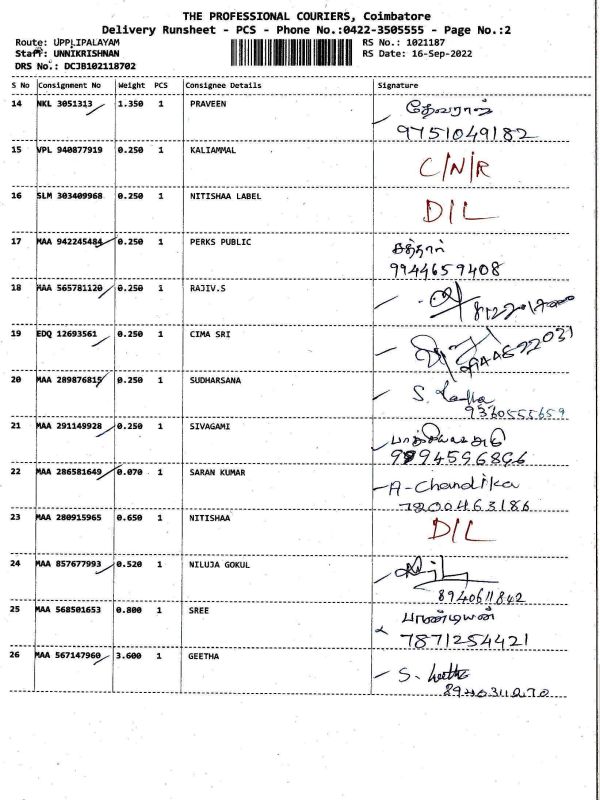 THE PROFESSIONAL COURIERS, Coimbatore
Delivery Runsheet - PCS - Phone No.:0422-3505555 - Page No.:2
Route: UPPLIPALAYAM
Staff: UNNIKRISHNAN
DRS No.: DCJB102118702
RS No.: 1021187
RS Date: 16-Sep-2022
S No Consignment No Weight PCS Consignee Details Signature
14 NKL 3051313 1.350 1 PRAVEEN தேவராஜ்
9751049182
15 VPL 940877919 0.250 1 KALIAMMAL C/N/R
16 SLM 303409968 0.250 1 NITISHAA LABEL D/L
17 MAA 942245484 0.250 1 PERKS PUBLIC
9944659408
18 MAA 565781120 0.250 1 RAJIV.S
19 EDQ 12693561 0.250 1 CIMA SRI
20 MAA 289876815 0.250 1 SUDHARSANA S. Latha
9360555659
21 MAA 291149928 0.250 1 SIVAGAMI
9994596896
22 MAA 286581649 0.070 1 SARAN KUMAR A-Chandika
7200463186
23 MAA 280915965 0.650 1 NITISHAA D/L
24 MAA 857677993 0.520 1 NILUJA GOKUL
8940611842
25 MAA 568501653 0.800 1 SREE பாண்டியன்
7871254421
26 MAA 567147960 3.600 1 GEETHA S. Geetha